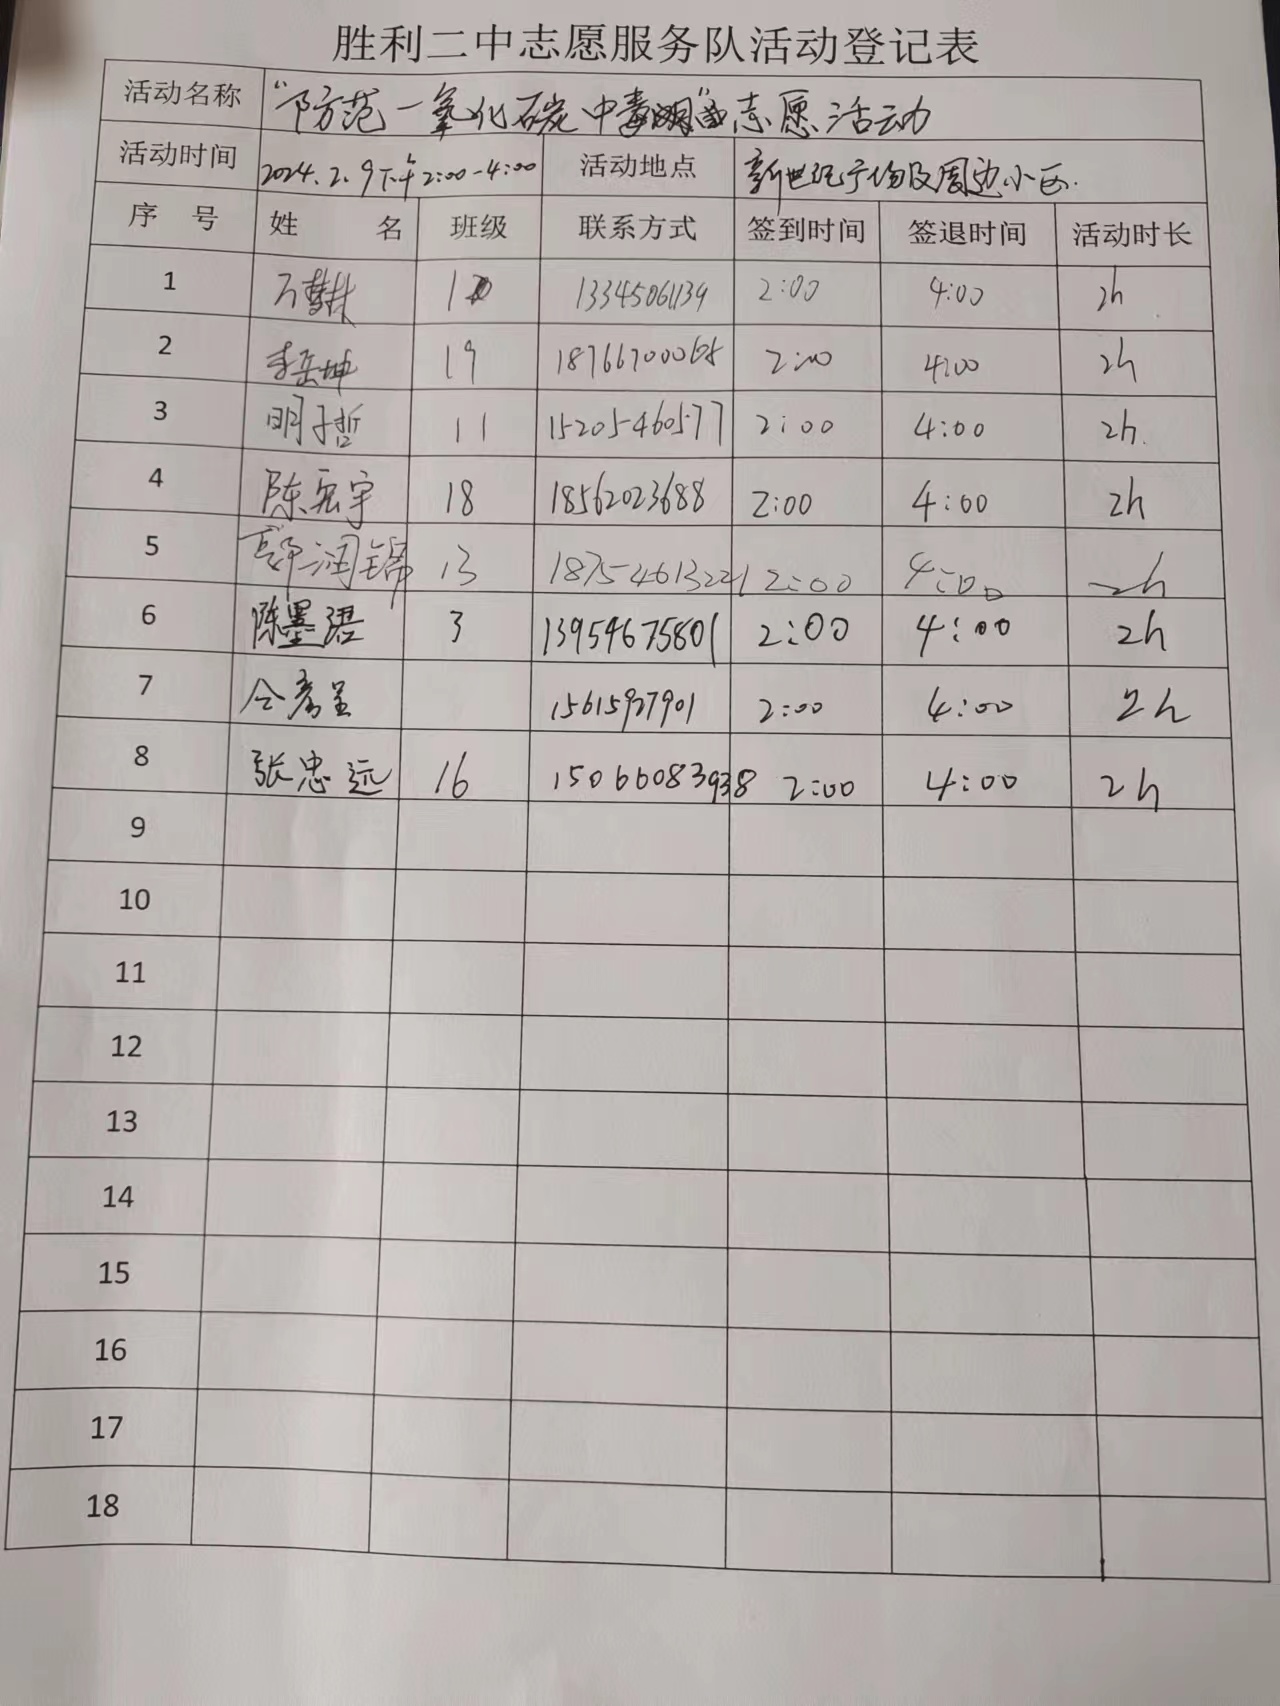 胜利二中志愿服务队活动登记表
活动名称 “防范一氧化碳中毒”志愿活动
活动时间 2024.2.9下午2:00-4:00 活动地点 新世纪广场及周边小区.
序 号 姓 名 班级 联系方式 签到时间 签退时间 活动时长
1 13345061139 2:00 4:00 2h
2 李岳坤 19 2:00 4:00 2h
3 明子哲 11 15205460577 2:00 4:00 2h.
4 陈宏宇 18 18562023688 2:00 4:00 2h
5 郭润锦 13 18754613221 2:00 4:00 2h
6 陈墨语 3 13954675801 2:00 4:00 2h
7 15615927901 2:00 4:00 2h
8 张忠远 16 15066083938 2:00 4:00 2h
9
10
11
12
13
14
15
16
17
18